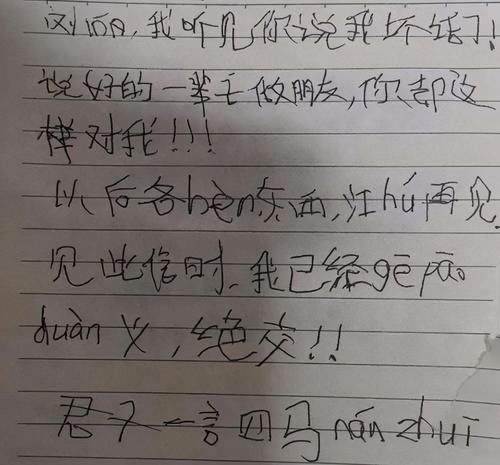 刘,我听见你说我坏话了!
说好的一辈子做朋友,你却这
样对我!!!
以后各bèn东西,江hú再见.
见此信时,我已经gē pāo
duàn义,绝交!!
君子一言四马nán zhuī